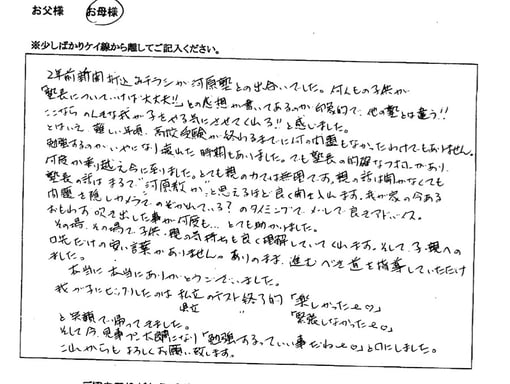 お父様 お母様
※少しばかりケイ線から離してご記入ください。
2年前新聞折込みチラシが河原塾との出会いでした。何人もの子供が
塾長についていけば大丈夫!!との感想が書いてあるのが印象的で、他の塾とは違う!!
ここなら のんきな我が子をやる気にさせてくれる!!と感じました。
とはいえ、難しい年頃、高校受験が終わるまでに何の問題もなかったわけでもありません。
勉強するのがいやになり疲れた時期もありました。でも塾長の的確なフォローがあり、
何度か乗り越え今に至りました。とても親の力では無理です。親の話は聞かなくても
塾長の話はまるで"河原教か"と思えるほど良く聞き入れます。我が家の今ある
問題を隠しカメラでのぞかれている?のタイミングで、メールで良きアドバイス。
おもわず吹き出した事が何度も… とても助かりました。
その場、その場で子供・親の気持ちを良く理解していてくれます。そして、子・親への
口先だけの安い言葉がありません。ありのまま、進むべき道を指導していただけ
ました。
本当に本当にありがとうございました。
我が子にビックリしたのは 私立のテスト終了的「楽しかったヨ♡」
県立 〃 「緊張しなかったヨ♡」
と笑顔で帰ってきました。
そして今、見事
になり「勉強するっていい事だね♡」と口にしました。
これからもよろしくお願い致します。